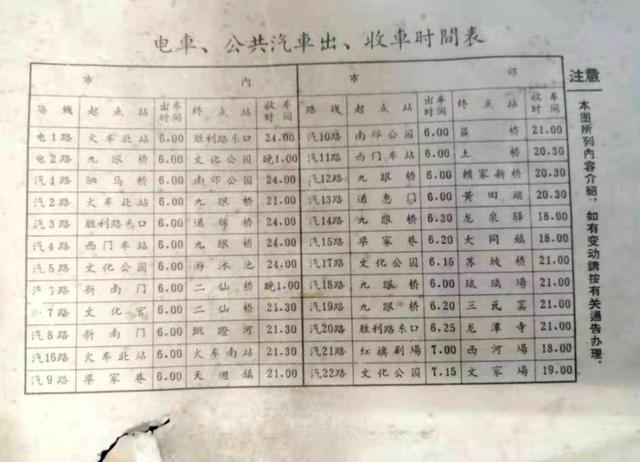 电車、公共汽車出、收車时間表
市 内 市 郊
路线 起点站 出车时间 终点站 收车时间 路线 起点站 出车时间 终点站 收车时间
电1路 火车北站 6.00 胜利路东口 24.00 汽10路 南郊公园 6.00 桥 21.00
电2路 九眼桥 6.00 文化公园 晚1.00 汽11路 西门车站 6.00 土桥 20.30
汽1路 驷马桥 6.00 南郊公园 24.00 汽12路 九眼桥 6.00 赖家新桥 20.30
汽2路 火车北站 6.00 九眼桥 21.00 汽13路 通惠门 6.00 黄田坝 20.30
汽3路 胜利路东口 6.00 通锦桥 24.00 汽14路 九眼桥 6.30 龙泉驿 18.00
汽4路 西门车站 6.00 九眼桥 24.00 汽15路 梁家巷 6.20 大同镇 18.00
汽5路 文化公园 6.00 游泳池 24.00 汽17路 文化公园 6.15 苏坡桥 21.00
路 新南门 6.00 二仙桥 晚1.00 汽18路 九眼桥 6.00 琉璃場 21.00
7路 文化宫 6.00 二仙桥 21.30 汽19路 九眼桥 6.20 三瓦窑 21.00
汽8路 新南门 6.00 跳蹬河 21.30 汽20路 胜利路东口 6.25 龙潭寺 21.00
汽16路 火车北站 6.00 火车南站 21.30 汽21路 红旗剧場 7.00 西河場 18.00
汽9路 梁家巷 6.00 天迴鎮 21.00 汽22路 文化公园 7.15 文家場 19.00
注意
本图所列内容介紹，如有变动請按有关通告办理。